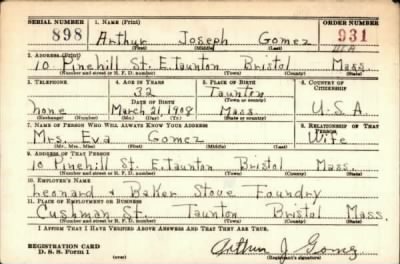 SERIAL NUMBER 1. NAME (Print) ORDER NUMBER
898 Arthur Joseph Gomez 931
(First) (Middle) (Last)
2. ADDRESS (Print)
10 Pinehill St. E. Taunton Bristol Mass.
(Number and street or R. F. D. number) (Town) (County) (State)
3. TELEPHONE 4. AGE IN YEARS 5. PLACE OF BIRTH 6. COUNTRY OF CITIZENSHIP
32 Taunton
(Town or county)
DATE OF BIRTH
none March 21, 1908 Mass U.S.A.
(Exchange) (Number) (Mo.) (Day) (Yr.) (State or country)
7. NAME OF PERSON WHO WILL ALWAYS KNOW YOUR ADDRESS 8. RELATIONSHIP OF THAT PERSON
Mrs. Eva Gomez Wife
(Mr., Mrs., Miss) (First) (Middle) (Last)
9. ADDRESS OF THAT PERSON
10 Pinehill St. E. Taunton Bristol Mass.
(Number and street or R. F. D. number) (Town) (County) (State)
10. EMPLOYER'S NAME
Leonard & Baker Stove Foundry
11. PLACE OF EMPLOYMENT OR BUSINESS
Cushman St. Taunton Bristol Mass.
(Number and street or R. F. D. number) (Town) (County) (State)
I AFFIRM THAT I HAVE VERIFIED ABOVE ANSWERS AND THAT THEY ARE TRUE.
REGISTRATION CARD
D. S. S. Form 1 Arthur J Gomez
(Registrant's signature)